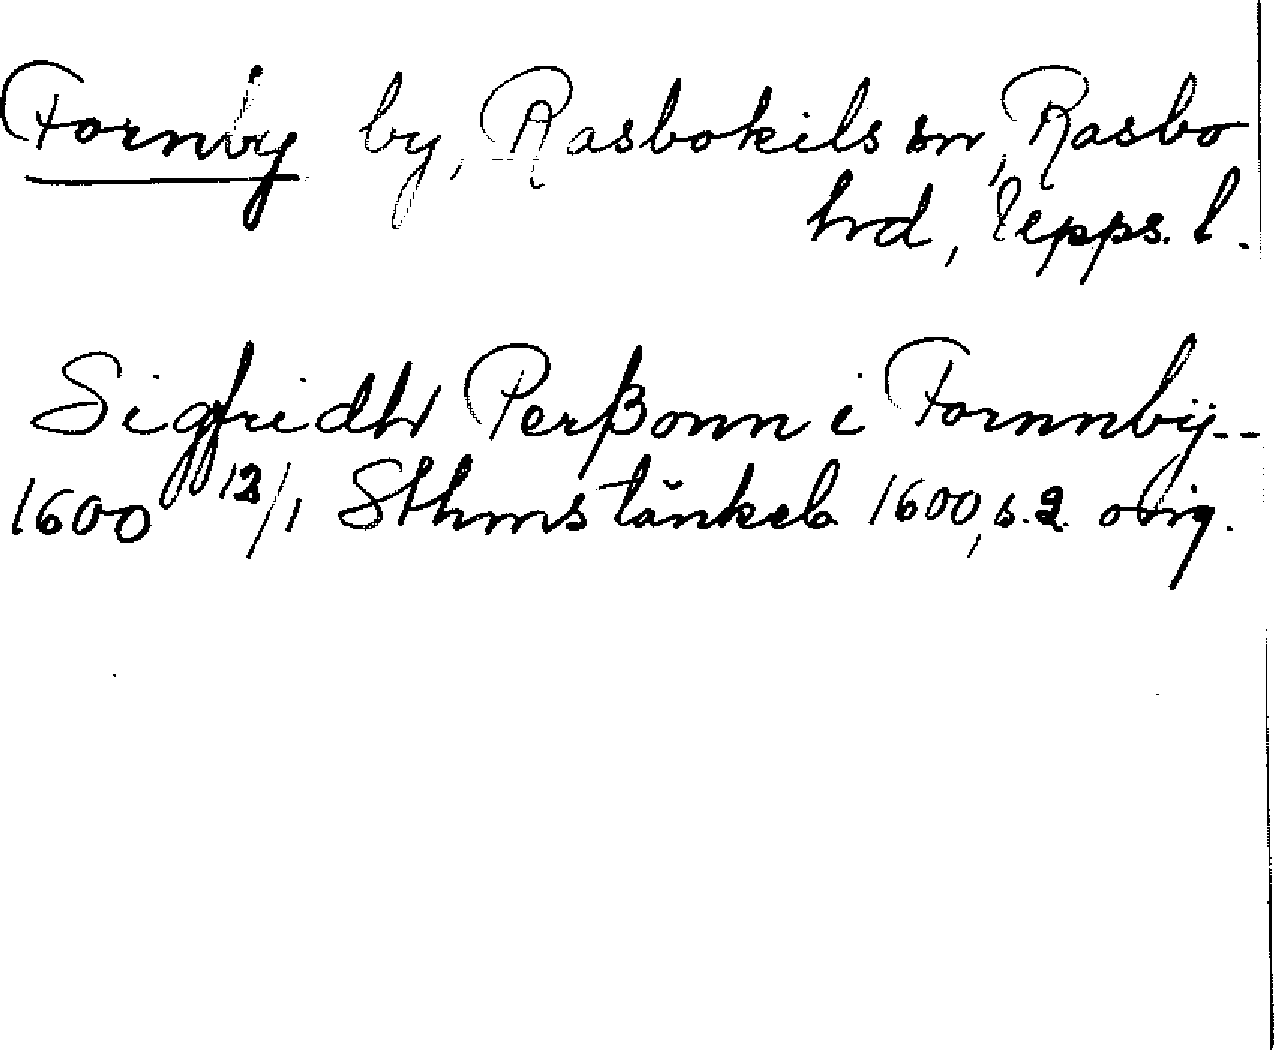 Fornby by, Rasbokils sn, Rasbo
hrd, Upps. l.
Sigfridh Perßonn i Fornnbÿ--
1600 12/1 Sthms tänkeb 1600, s. 2. orig.